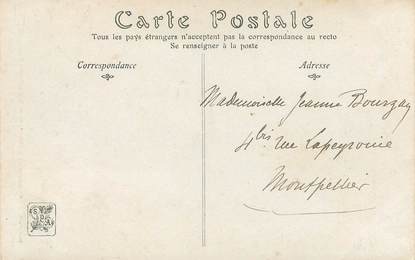 Carte Postale
Tous les pays étrangers n'acceptent pas la correspondance au recto
Se renseigner à la poste
Correspondance
Adresse
Mademoiselle Jeanne
4 bis rue Lapeyronie
Montpellier